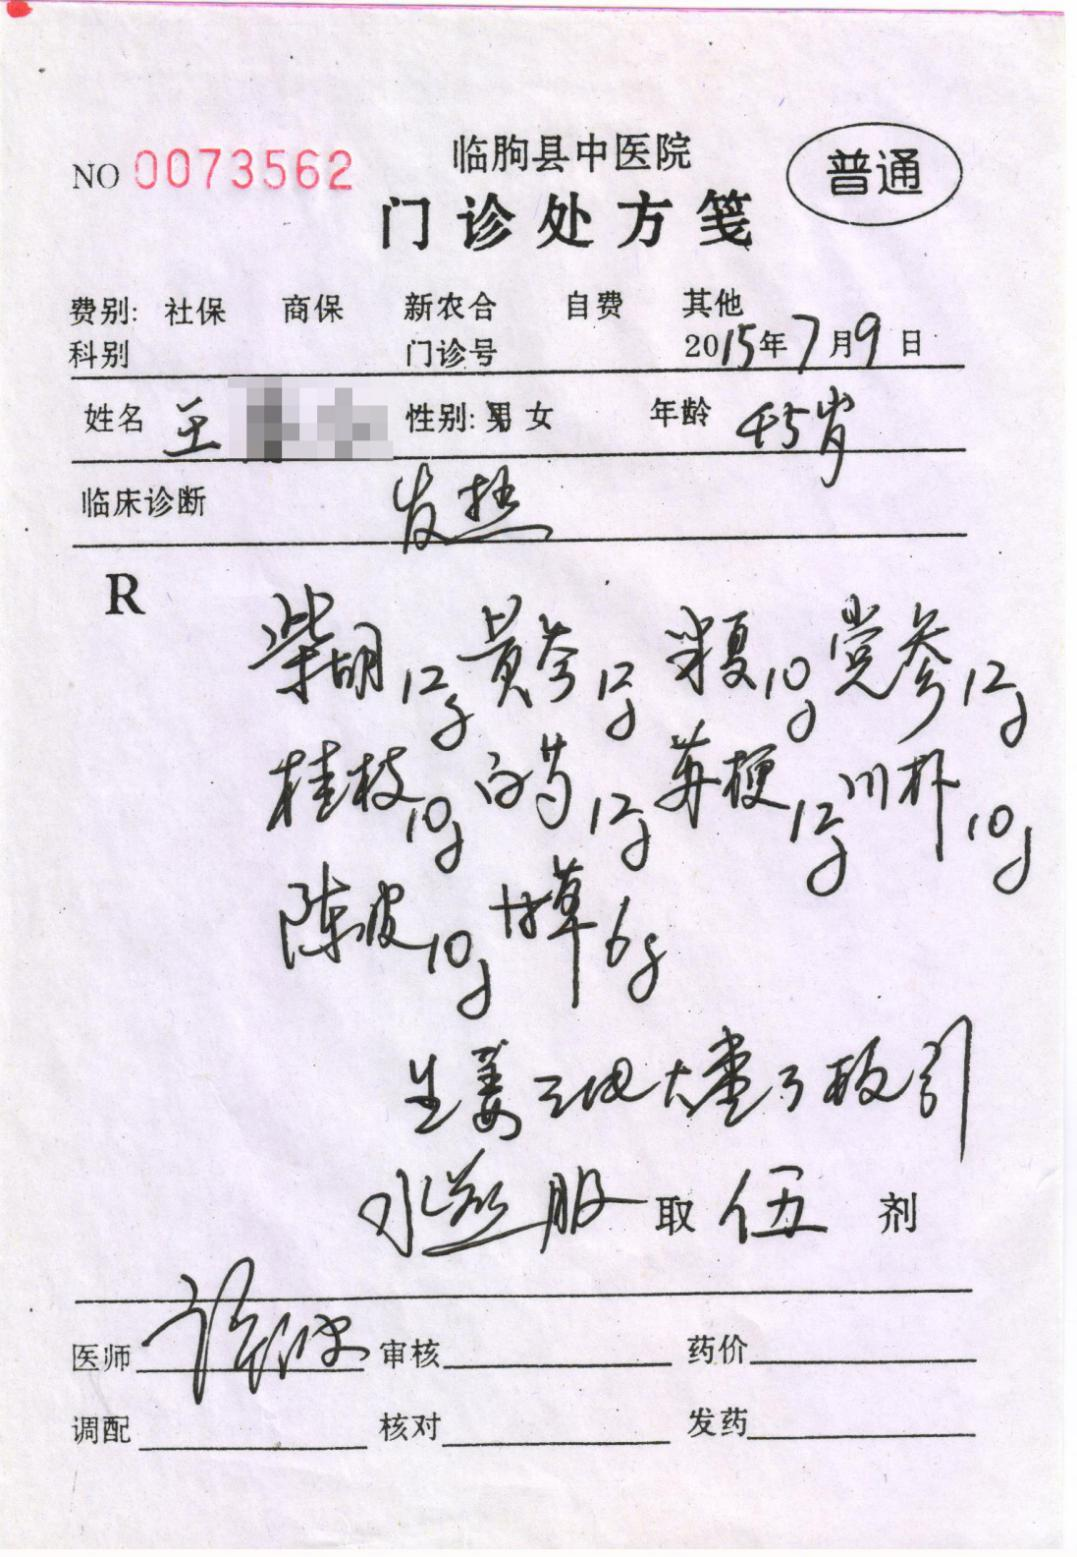 NO 0073562
临朐县中医院
普通
门诊处方笺
费别: 社保 商保 新农合 自费 其他
科别 门诊号 2015年7月9日
姓名 王 性别: 男 女 年龄 45岁
临床诊断 发热
R
柴胡12g 黄芩12g 半夏10g 党参12g
桂枝10g 白芍12g 苏梗12g 川朴10g
陈皮10g 甘草6g
生姜三四大枣3枚引
水煎服 取 伍 剂
医师 审核 药价
调配 核对 发药